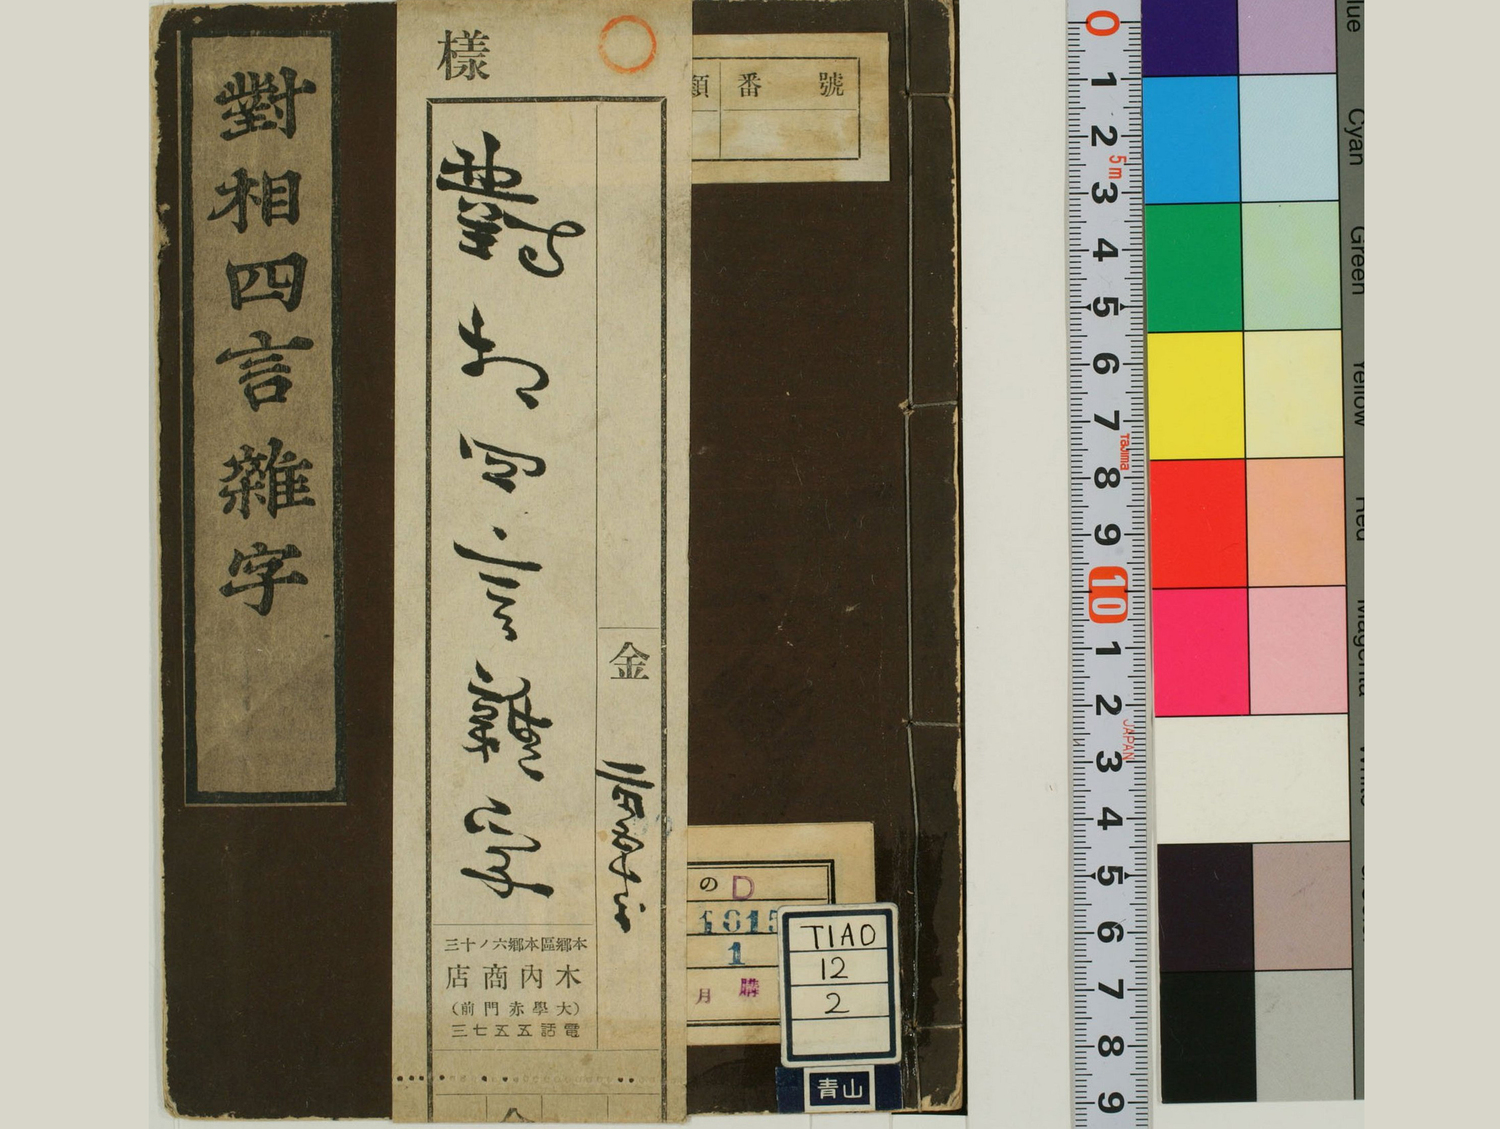 對相四言雜字
樣
對相四言雜字
金
本鄕區本鄕六ノ十三
木內商店
(大學赤門前)
電話五五七三
類
番號
の D
1015
1
月 購
TIAO
12
2
青山
0
1
2
5m
3
4
5
6
7
tajima
8
9
10
1
2
JAPAN
3
4
5
6
7
8
9
Cyan
Green
Yellow
Red
Magenta
White